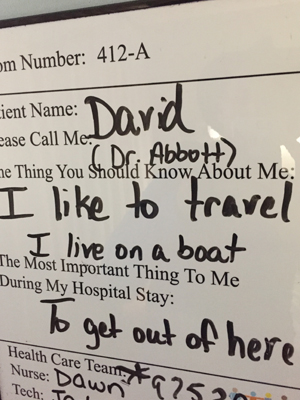 om Number: 412-A
ient Name: David
ease Call Me:
(Dr. Abbott)
ne Thing You Should Know About Me:
I like to travel
I live on a boat
The Most Important Thing To Me
During My Hospital Stay:
To get out of here
Health Care Team:
Nurse: Dawn *9752
Tech: